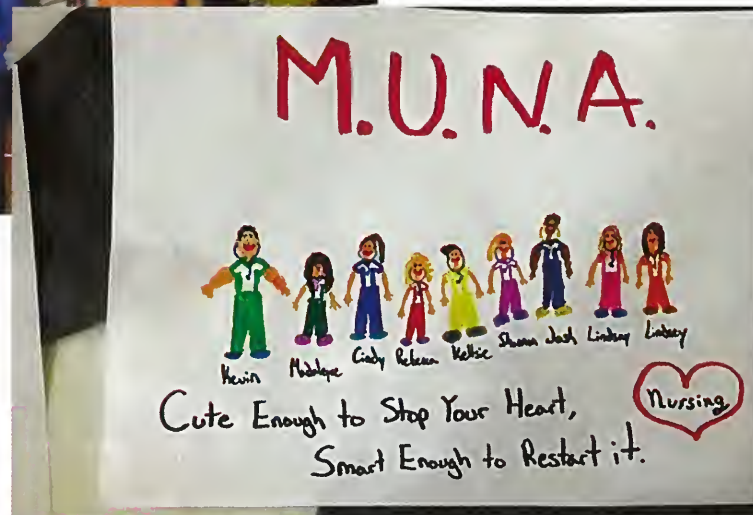 M.U.N.A.
Kevin Madalyne Cindy Rebecca Kellie Shawna Josh Lindsay Lindsey
Cute Enough to Stop Your Heart,
Smart Enough to Restart it.
Nursing